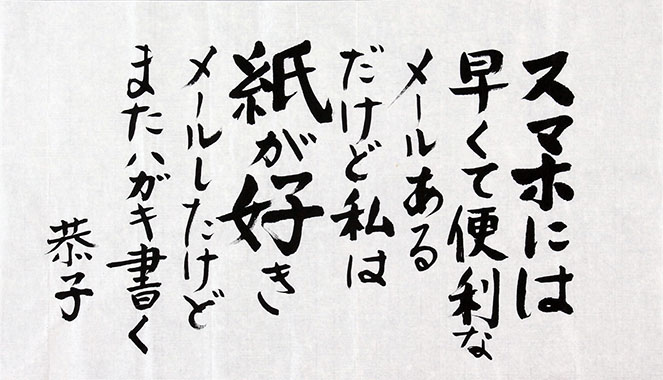 スマホには
早くて便利な
メールある
だけど私は
紙が好き
メールしたけど
またハガキ書く
恭子